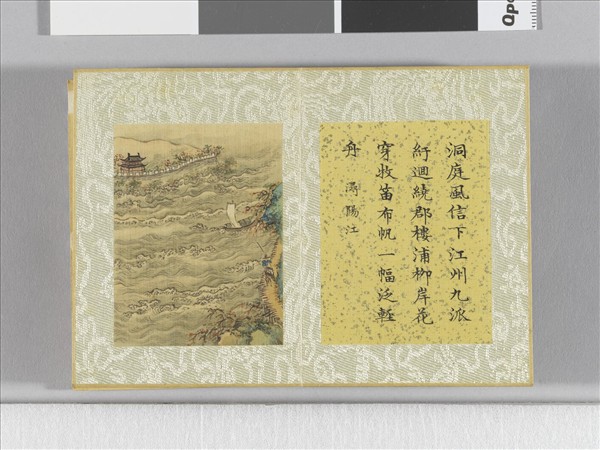 洞庭風信下江州九派
紆迴繞郡樓浦柳岸花
穿牧笛布帆一幅泛輕
舟 潯陽江